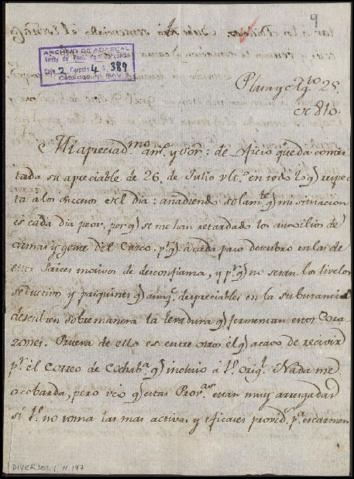 9
ARCHIVO DE ABASCAL
Caja 2 Carpeta 4 389
Plata y Ag.to 25
de 810.
Mi apreciad.mo am.o y Sor: de oficio queda contes
tada su apreciable de 26 de Julio ult.o en todo lo q.e respec
ta a los sucesos del dia: añadiendo solam.te q.e mi situacion
es cada dia peor, por q.e se me han retardado los auxilios de
Armas y gente del Cuzco, p.r q.e a cada paso descubro en los de
estos Paises motivos de desconfianza, y p.r q.e no seran los livelos
seductivos y pasquines q.e aunq.e despreciables en la substancia
descubren sobremanera la levadura q.e fermenta en estos Cora
zones. Prueva de ello es entre otros el q.e acavo de recivir
p.r el Correo de Cochab.a q.e incluio a V. orig.l Nada me
acobarda, pero veo q.e estas Prov.as estan muy arriesgadas
si V. no toma las mas activas y eficaces provid.s p.a escarmen
DIVERSOS, 1 N 197